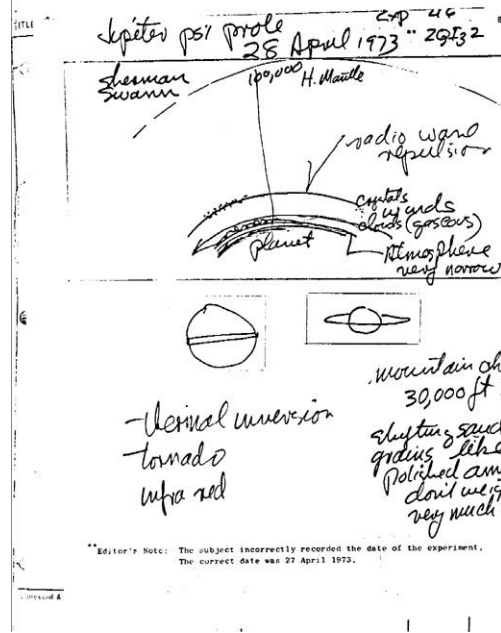 TITLE
Jupiter psi probe
Exp 46
28 April 1973 **
Sherman
Swann
100,000 H. Mantle
radio wave
repulsion
crystals
winds
clouds (gaseous)
planet
Atmosphere
very narrow
mountain
30,000 ft
- thermal inversion
- tornado
infra red
shifting sand
grains like
Polished
don't
very much
**Editor's Note: The subject incorrectly recorded the date of the experiment.
The correct date was 27 April 1973.